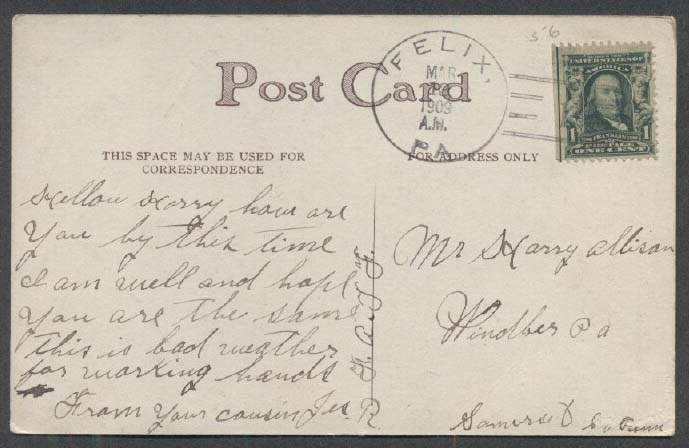 5'6
FELIX,
MAR
1909
A.M.
PA.
UNITED STATES OF
AMERICA
1 FRANKLIN 1
POSTAGE
ONE CENT
Post Card
THIS SPACE MAY BE USED FOR
CORRESPONDENCE
FOR ADDRESS ONLY
Hellow Harry how are
You by this time
I am well and hope
you are the same
this is bad weather
for working hands
From Your cousin
Mr Harry Allison
Windber Pa
Somerset